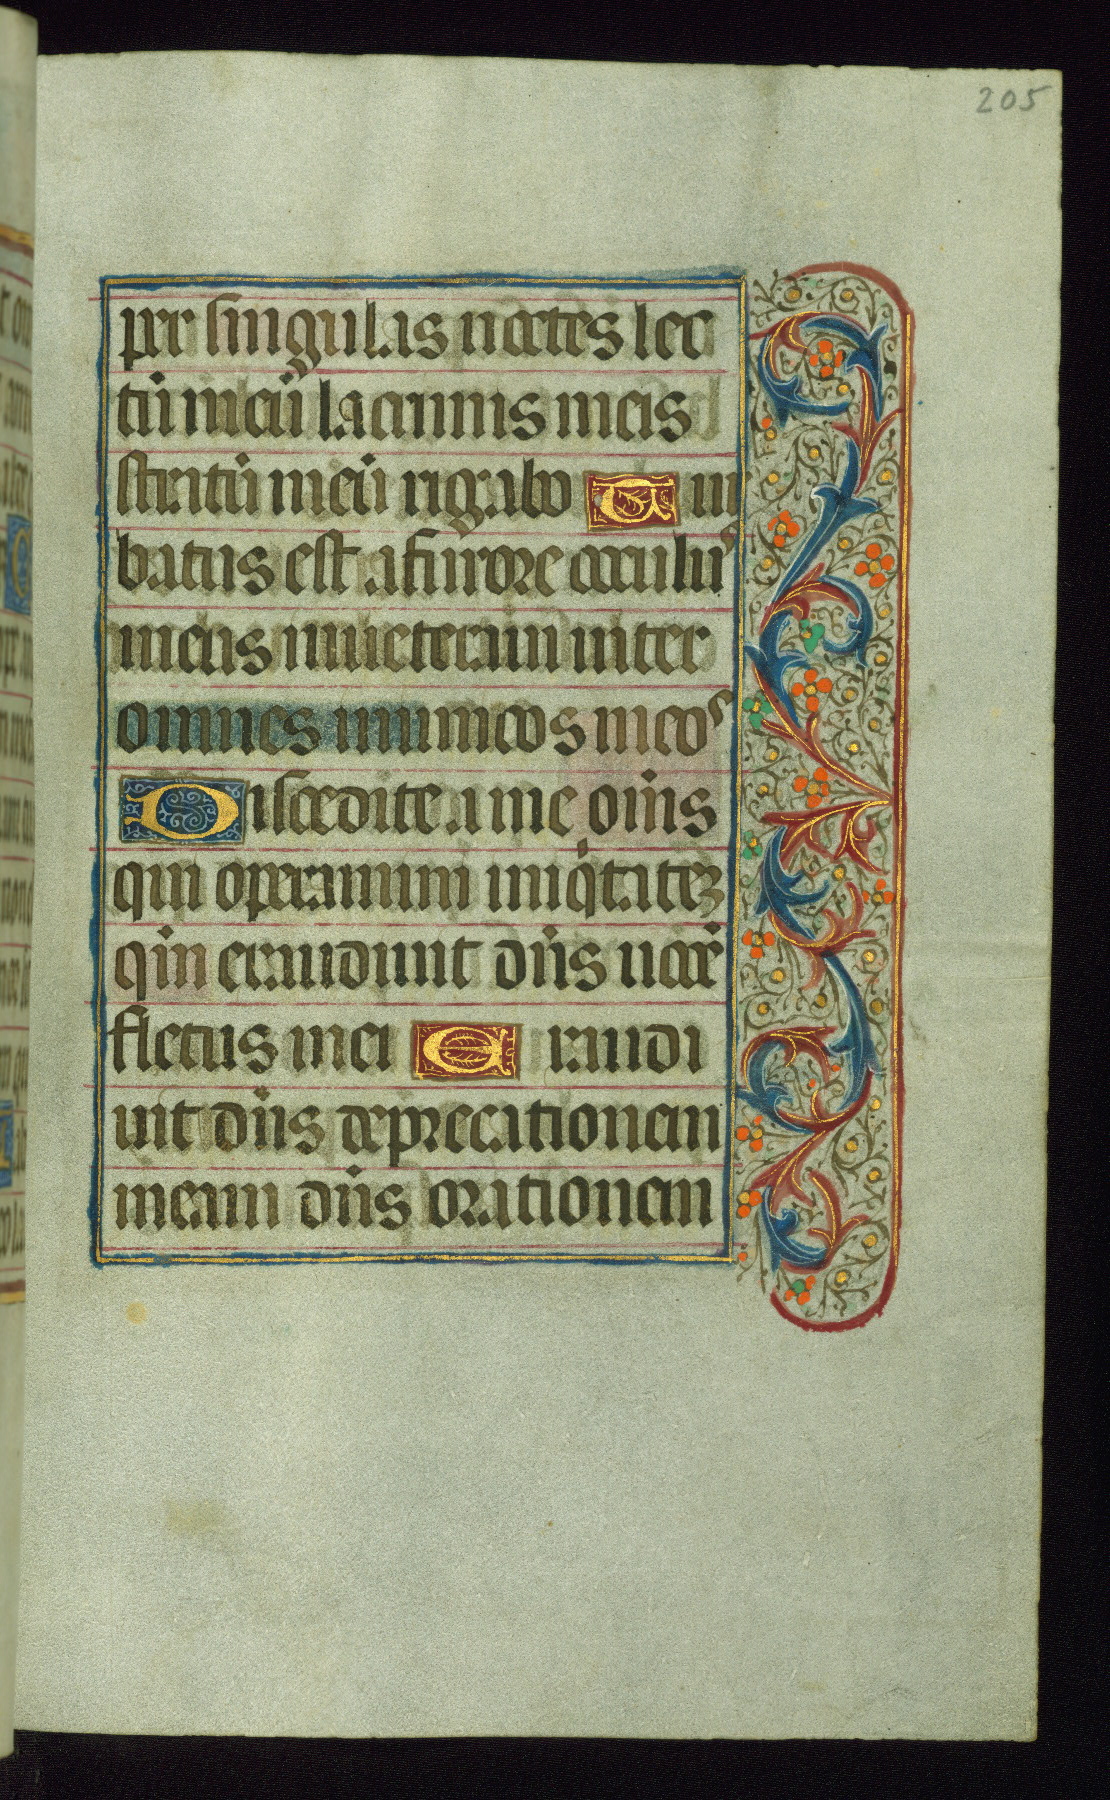 205
per singulas noctes lec
tū meū lacrimis meis
stratū meū rigabo Tur
batus est a furore oculus
meus inueteraui inter
omnes inimicos meos
Discedite a me oms̄
qui operamini iniq̇tatē
qm̄ exaudiuit dn̄s uocē
fletus mei Exaudi
uit dn̄s deprecationem
meam dn̄s orationem